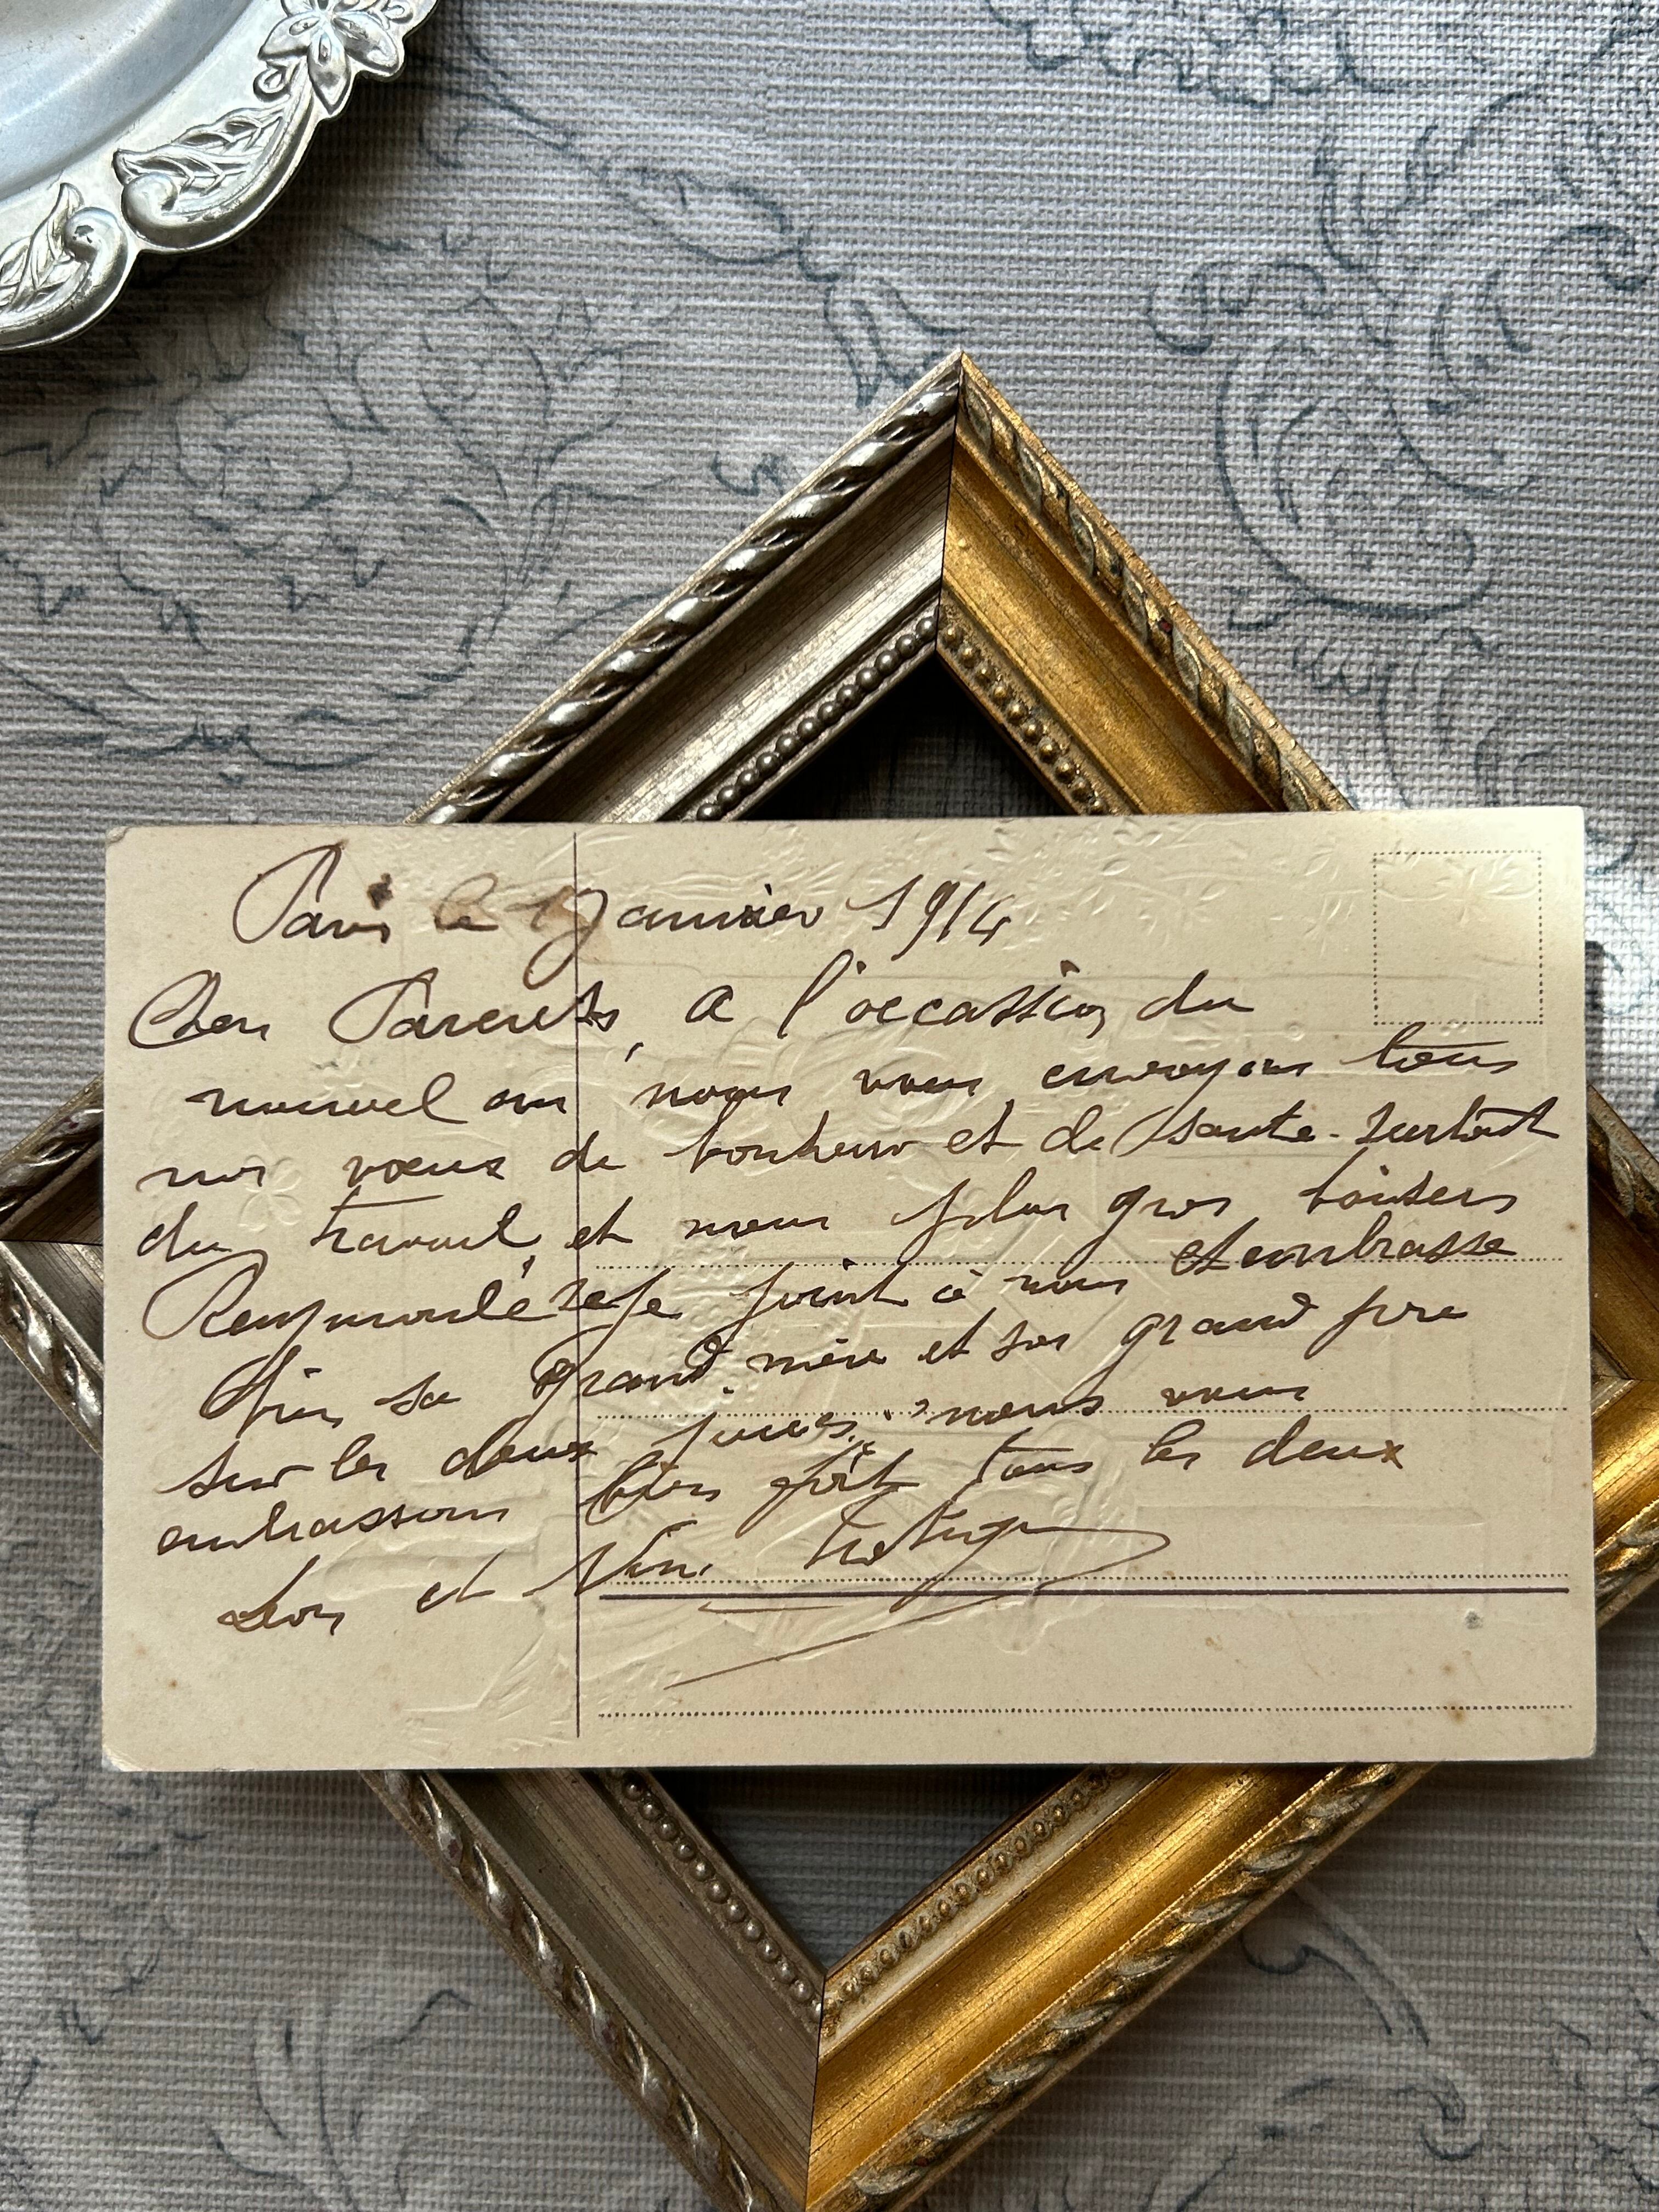 Paris le 1 Janvier 1914
Cher Parents, a l'occassion du
nouvel an nous vous envoyons tous
nos voeux de bonheur et de sante. surtout
du travail, et nous plus gros baisers
Raymonde se joint à nous et embrasse
bien sa grand. mère et son grand pere
sur les deux joues. nous vous
embrassons bien fort tous les deux
Leon et